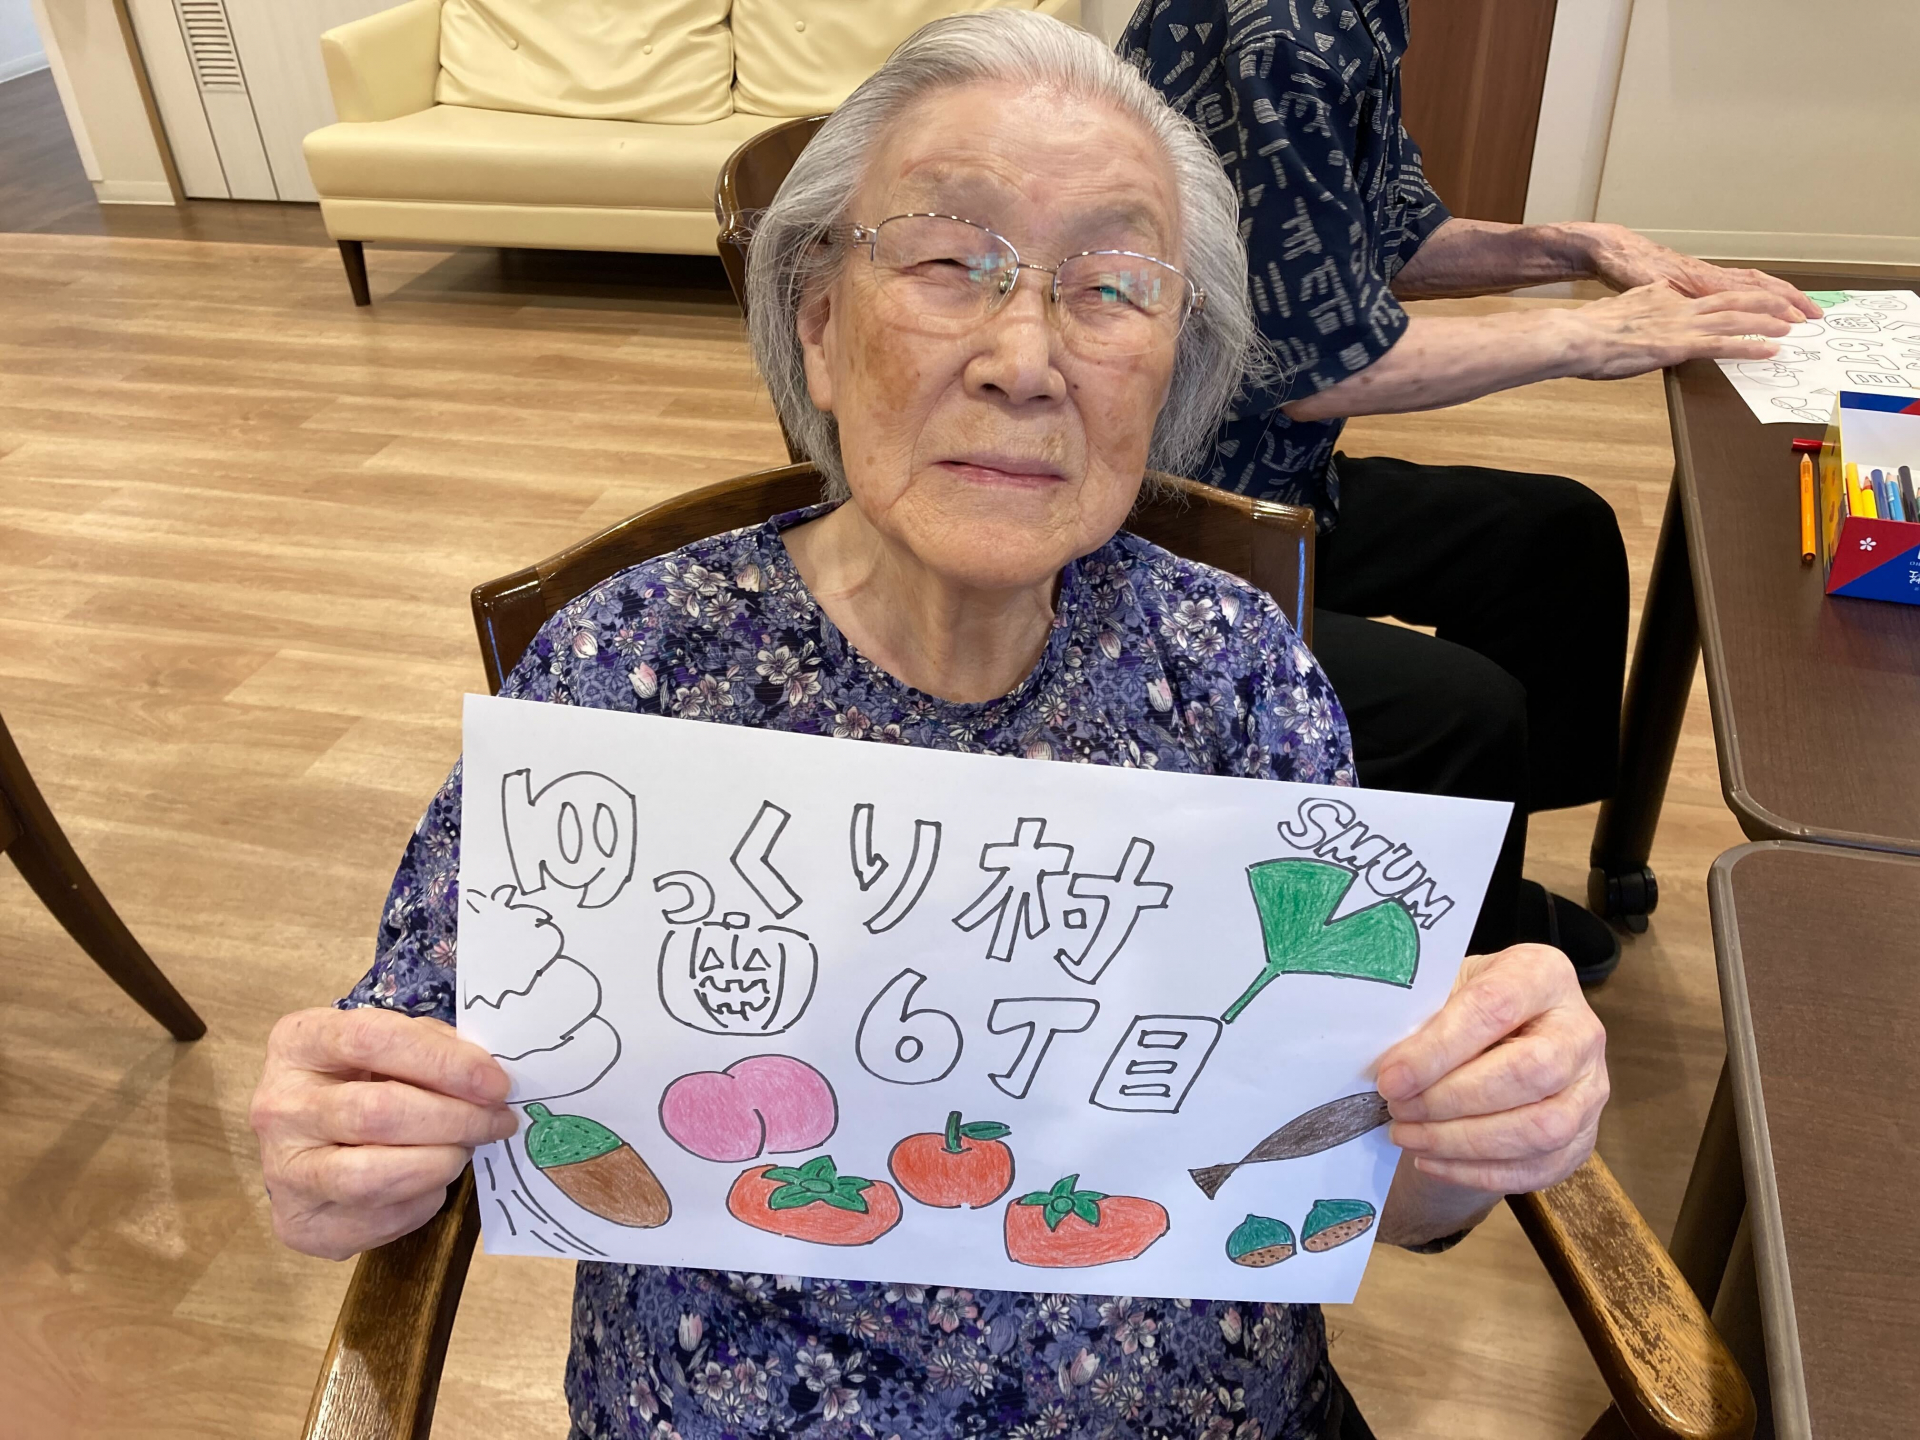 ゆっくり村
6丁目
SMUM